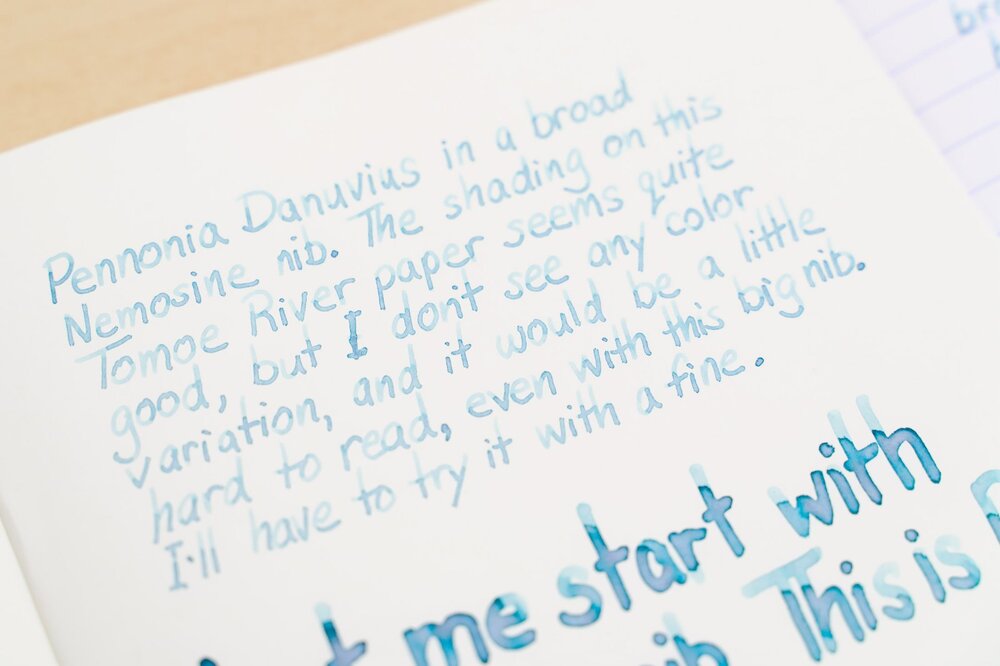 Pennonia Danuvius in a broad
Nemosine nib. The shading on this
Tomoe River paper seems quite
good, but I don't see any color
variation, and it would be a little
hard to read, even with this big nib.
I'll have to try it with a fine.
me start with
nib. This is